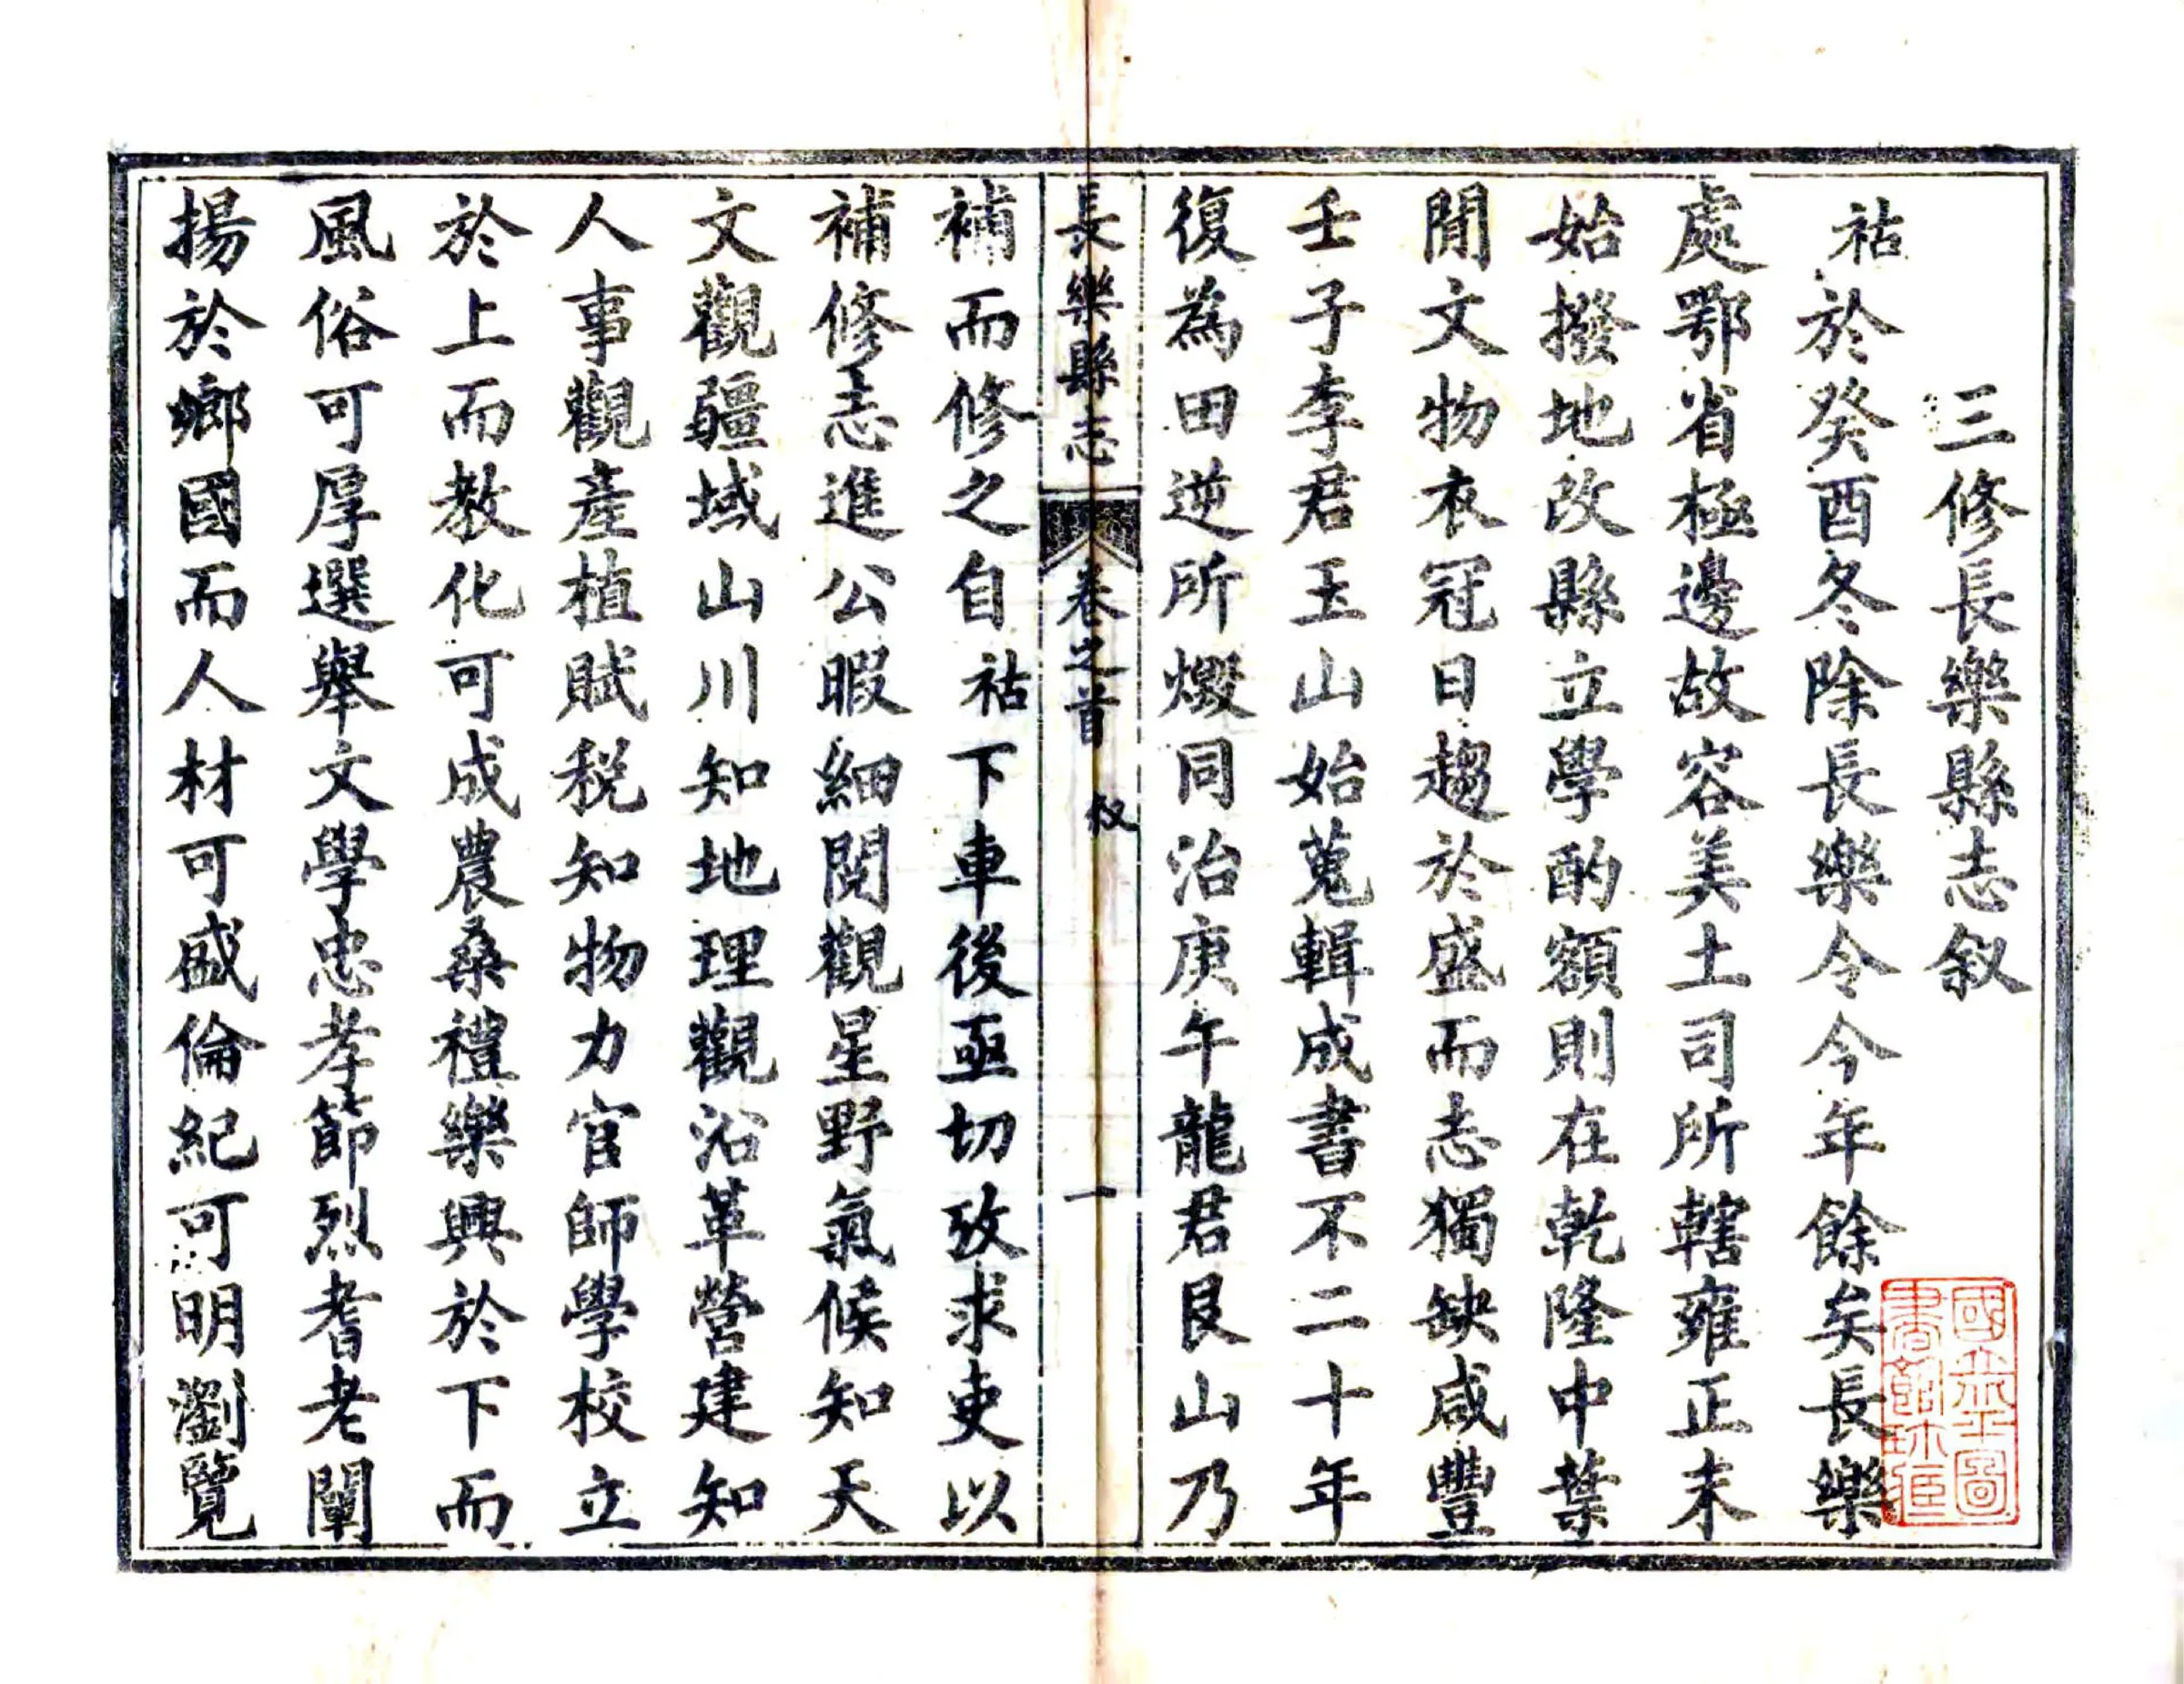 三修長樂縣志叙
祜於癸酉冬除長樂令今年餘矣長樂
處鄂省極邊故容美土司所轄雍正末
始撥地改縣立學酌額則在乾隆中葉
閒文物衣冠日趨於盛而志獨缺咸豐
壬子李君玉山始蒐輯成書不二十年
復為田逆所燬同治庚午龍君艮山乃
長樂縣志 卷之首 叙 一
補而修之自祜下車後亟切攷求吏以
補修志進公暇細閱觀星野氣候知天
文觀疆域山川知地理觀沿革營建知
人事觀產植賦稅知物力官師學校立
於上而教化可成農桑禮樂興於下而
風俗可厚選舉文學忠孝節烈耆老闡
揚於鄉國而人材可盛倫紀可明瀏覽
國立北平圖書館珍藏